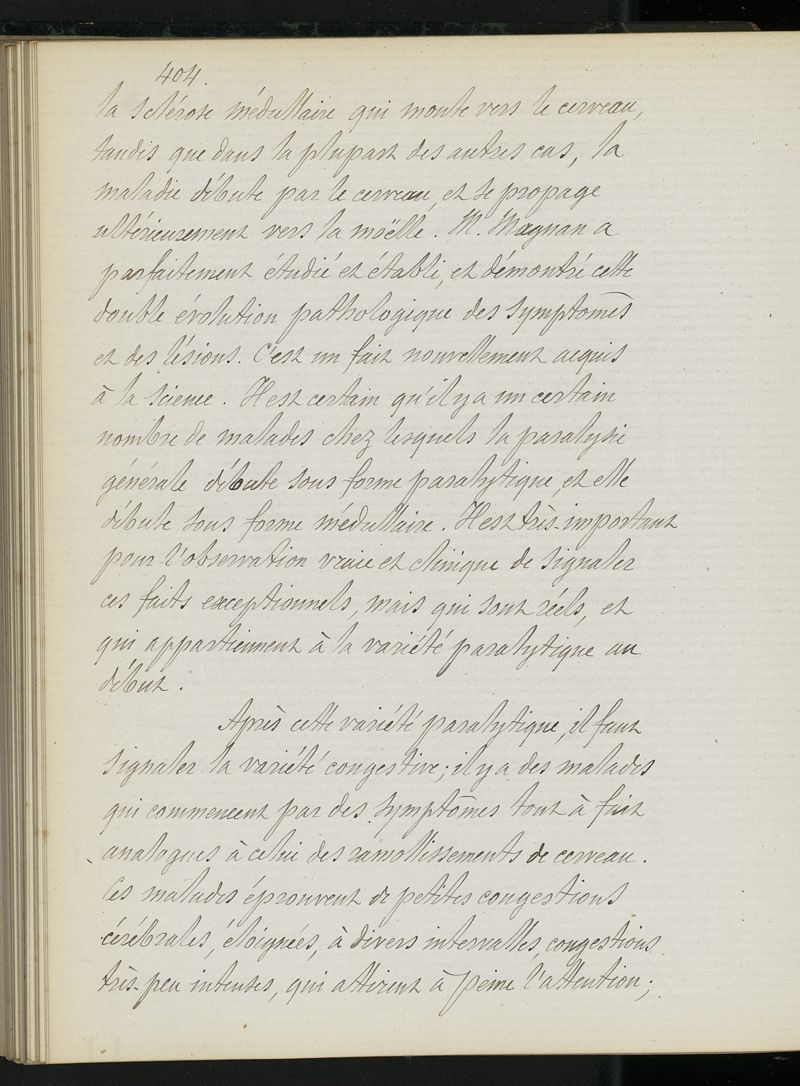 404.
la sclérose médullaire qui monte vers le cerveau,
tandis que dans la plupart des autres cas, la
maladie débute par le cerveau, et se propage
ultérieurement vers la moëlle. M. Magnan a
parfaitement étudié et établi, et démontré cette
double évolution pathologique des symptômes
et des lésions. C'est un fait nouvellement acquis
à la science. Il est certain qu'il y a un certain
nombre de malades chez lesquels la paralysie
générale débute sous forme paralytique, et elle
débute sous forme médullaire. Il est très-important
pour l'observation vraie et clinique de signaler
ces faits exceptionnels, mais qui sont réels, et
qui appartiennent à la variété paralytique au
début.
Après cette variété paralytique, il faut
signaler la variété congestive; il y a des malades
qui commencent par des symptômes tout à fait
analogues à celui des ramollissements de cerveau.
Ces malades éprouvent de petites congestions
cérébrales, éloignées, à divers intervalles, congestions
très-peu intenses, qui attirent à peine l'attention;